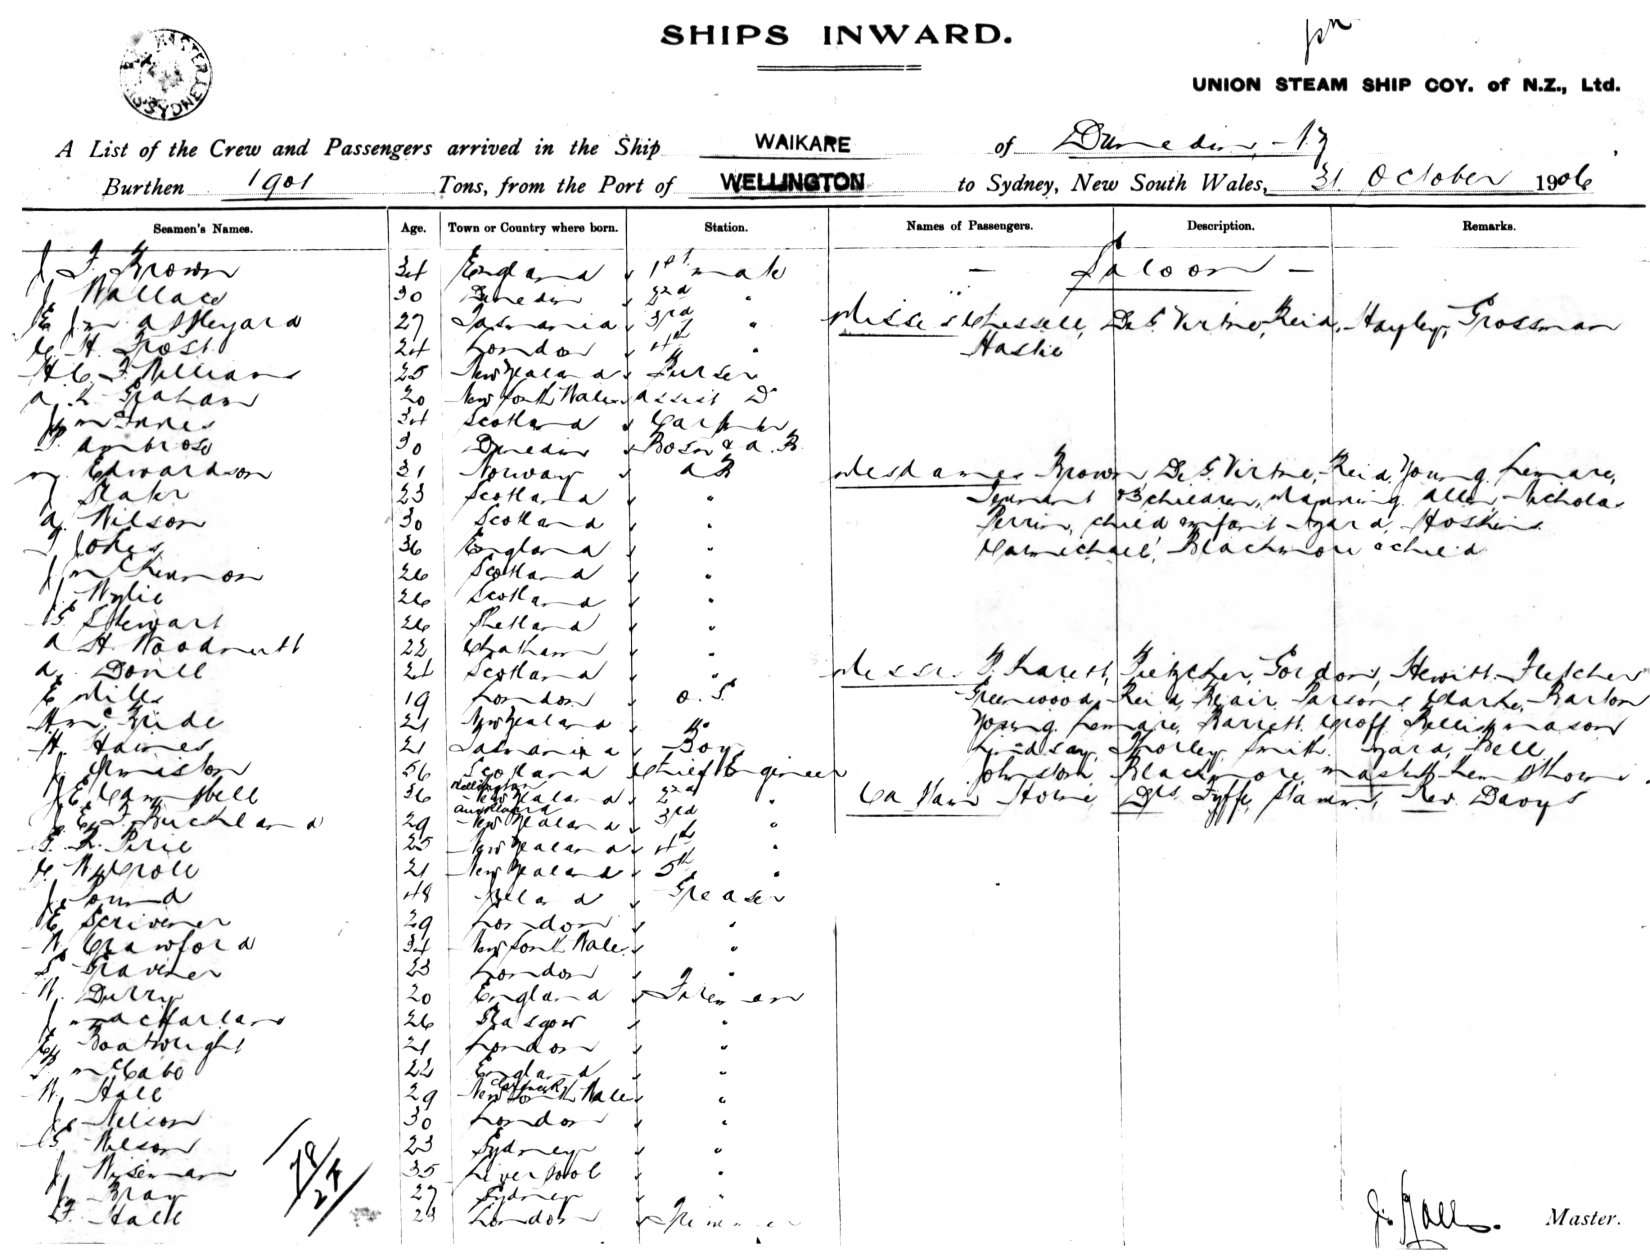 SHIPS INWARD.
UNION STEAM SHIP COY. of N.Z., Ltd.
A List of the Crew and Passengers arrived in the Ship WAIKARE of Dunedin
Burthen 1901 Tons, from the Port of WELLINGTON to Sydney, New South Wales, 31 October 1906
Seamen's Names. Age. Town or Country where born. Station. Names of Passengers. Description. Remarks.
J F Brown 34 England 1st mate — Saloon —
J Wallace 30 Dunedin 2nd "
E Jm Appleyard 27 Tasmania 3rd " Misses Chessell, De G. Virtue, Reid, Hayley, Grossman
C. H. Frost 24 London 4th "
Hastie
H C F Williams 25 New Zealand Purser
A L Graham 20 New South Wales Assist Do
J McInnes 34 Scotland Carpenter
P. Ambrose 30 Dunedin Bosn & A.B.
Edwardson 31 Norway AB Mesdames Brown De G. Virtue, Reid, Young, Lemare,
J Slater 23 Scotland " Tennant & 3 children, Manning, Allen, Nicholas
A. Wilson 30 Scotland " Perrin, child infant Izard, Hoskins
J Jones 36 England " Carmichael, Blackmore & child
J McKinnon 26 Scotland "
J. Wylie 26 Scotland "
G Stewart 26 Shetland "
A H. Woodnutt 22 Chatham "
A. Donill 21 Scotland " Messrs Garrett, Pietzcher, Gordon, Hewitt, Fletcher
E Mills 19 London O.S. Greenwood, Reid, Blair, Parsons, Clarke, Barton
H McBride 21 New Zealand Do Young, Lemare, Barrett, Groff, Bellis, Mason
H. Haines 21 Tasmania Boy Lindsay, Thorley, Smith, Izard, Bell
J Urmiston 56 Scotland Chief Engineer Johnston, Blackmore,
J E Campbell 36 Wellington New Zealand 2nd " Captain Horne, Drs Fyffe, Stamm, Rev. Davys
J. E. F. Buckland 29 Auckland New Zealand 3rd "
G. L. Pirie 25 New Zealand 4th "
C. W. Croll 21 New Zealand 5th "
J. Pound 48 Ireland Greaser
E Scrivener 29 London "
W. Crawford 34 New South Wales "
S. Gravener 23 London "
W. Durry 20 England Fireman
J Macfarlane 26 Glasgow "
E. Boatwright 21 London "
P. McCabe 22 England "
W. Hall 29 New South Wales "
J. Nelson 30 London "
G Wilson 23 Sydney "
J. Wiseman 35 Liverpool "
J. Bray 27 Sydney "
F. Hall 24 London Trimmer
Hall. Master.